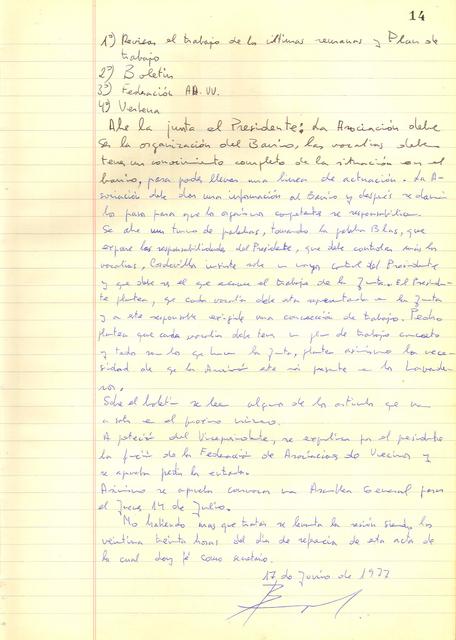 14
1º) Revisar el trabajo de las últimas semanas y Plan de
trabajo
2º) Boletin
3º) Federación AA.VV.
4º) Verbena
Abre la junta el Presidente: La Asociación debe
ser la organización del Barrio, las vocalias deben
tener un conocimiento completo de la situación en el
barrio, para poder llevar una linea de actuación. La A-
sociación debe dar una información al Barrio y después
lo pasa para que los organismos competentes se responsabilicen.
Se abre un turno de palabras, tomando la palabra Blas, que
expone las responsabilidades del Presidente, que debe controlar más las
vocalias, insiste sobre un mayor control del Presidente
y que debe ser el que el trabajo de la Junta. El Presiden-
te plantea, que cada vocalia debe estar representada en la Junta
y a este responsable exigirle una de trabajo. Pedro
plantea que cada vocalia debe tener un plan de trabajo concreto
y todo lo que haga la Junta, plantea asimismo la nece-
sidad de que la este más presente en los
Sobre el boletin se leen algunos de los articulos que van
a salir en el proximo número.
A petición del Vicepresidente, se explica por el presidente
la función de la Federación de Asociaciones de Vecinos y
se aprueba pedir la entrada.
Asimismo se aprueba convocar una Asamblea General para
el Jueves 14 de Julio.
No habiendo mas que tratar se levanta la sesión siendo las
veintiuna treinta horas del dia de de esta acta de
la cual doy fé como secretario.
17 de Junio de 1977